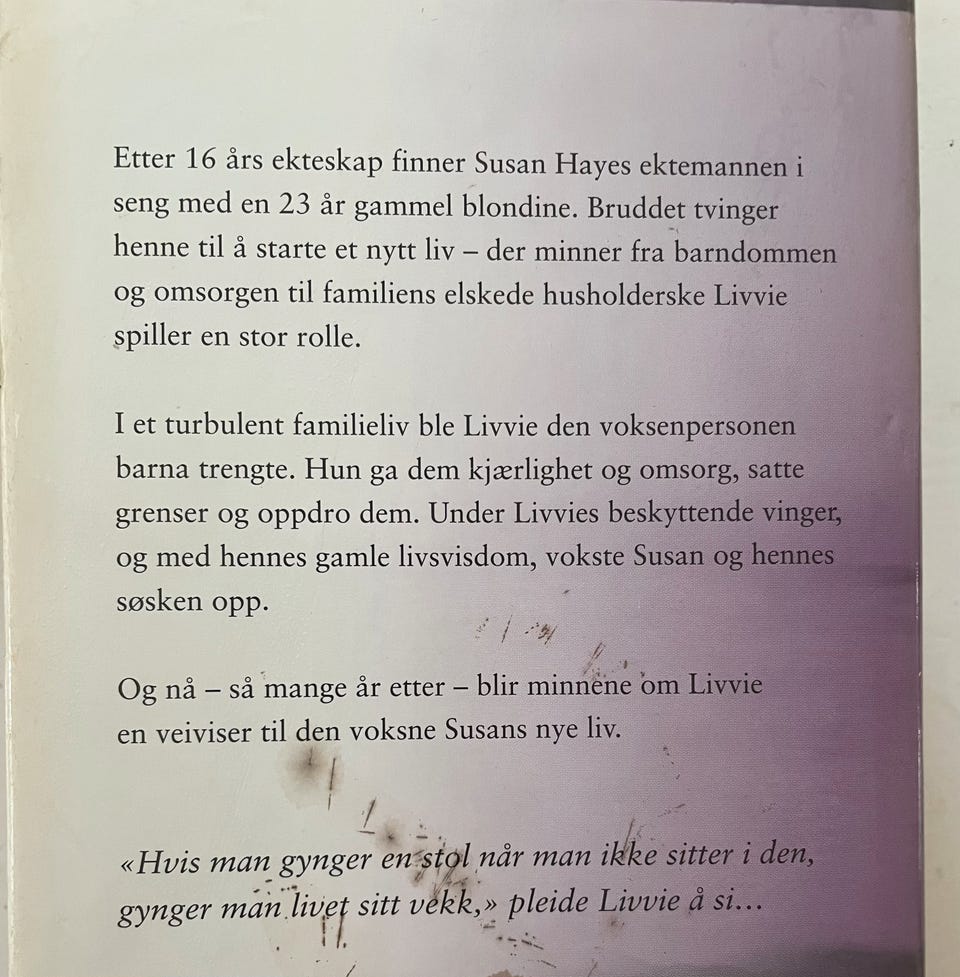 Etter 16 års ekteskap finner Susan Hayes ektemannen i
seng med en 23 år gammel blondine. Bruddet tvinger
henne til å starte et nytt liv – der minner fra barndommen
og omsorgen til familiens elskede husholderske Livvie
spiller en stor rolle.
I et turbulent familieliv ble Livvie den voksenpersonen
barna trengte. Hun ga dem kjærlighet og omsorg, satte
grenser og oppdro dem. Under Livvies beskyttende vinger,
og med hennes gamle livsvisdom, vokste Susan og hennes
søsken opp.
Og nå – så mange år etter – blir minnene om Livvie
en veiviser til den voksne Susans nye liv.
«Hvis man gynger en stol når man ikke sitter i den,
gynger man livet sitt vekk,» pleide Livvie å si...